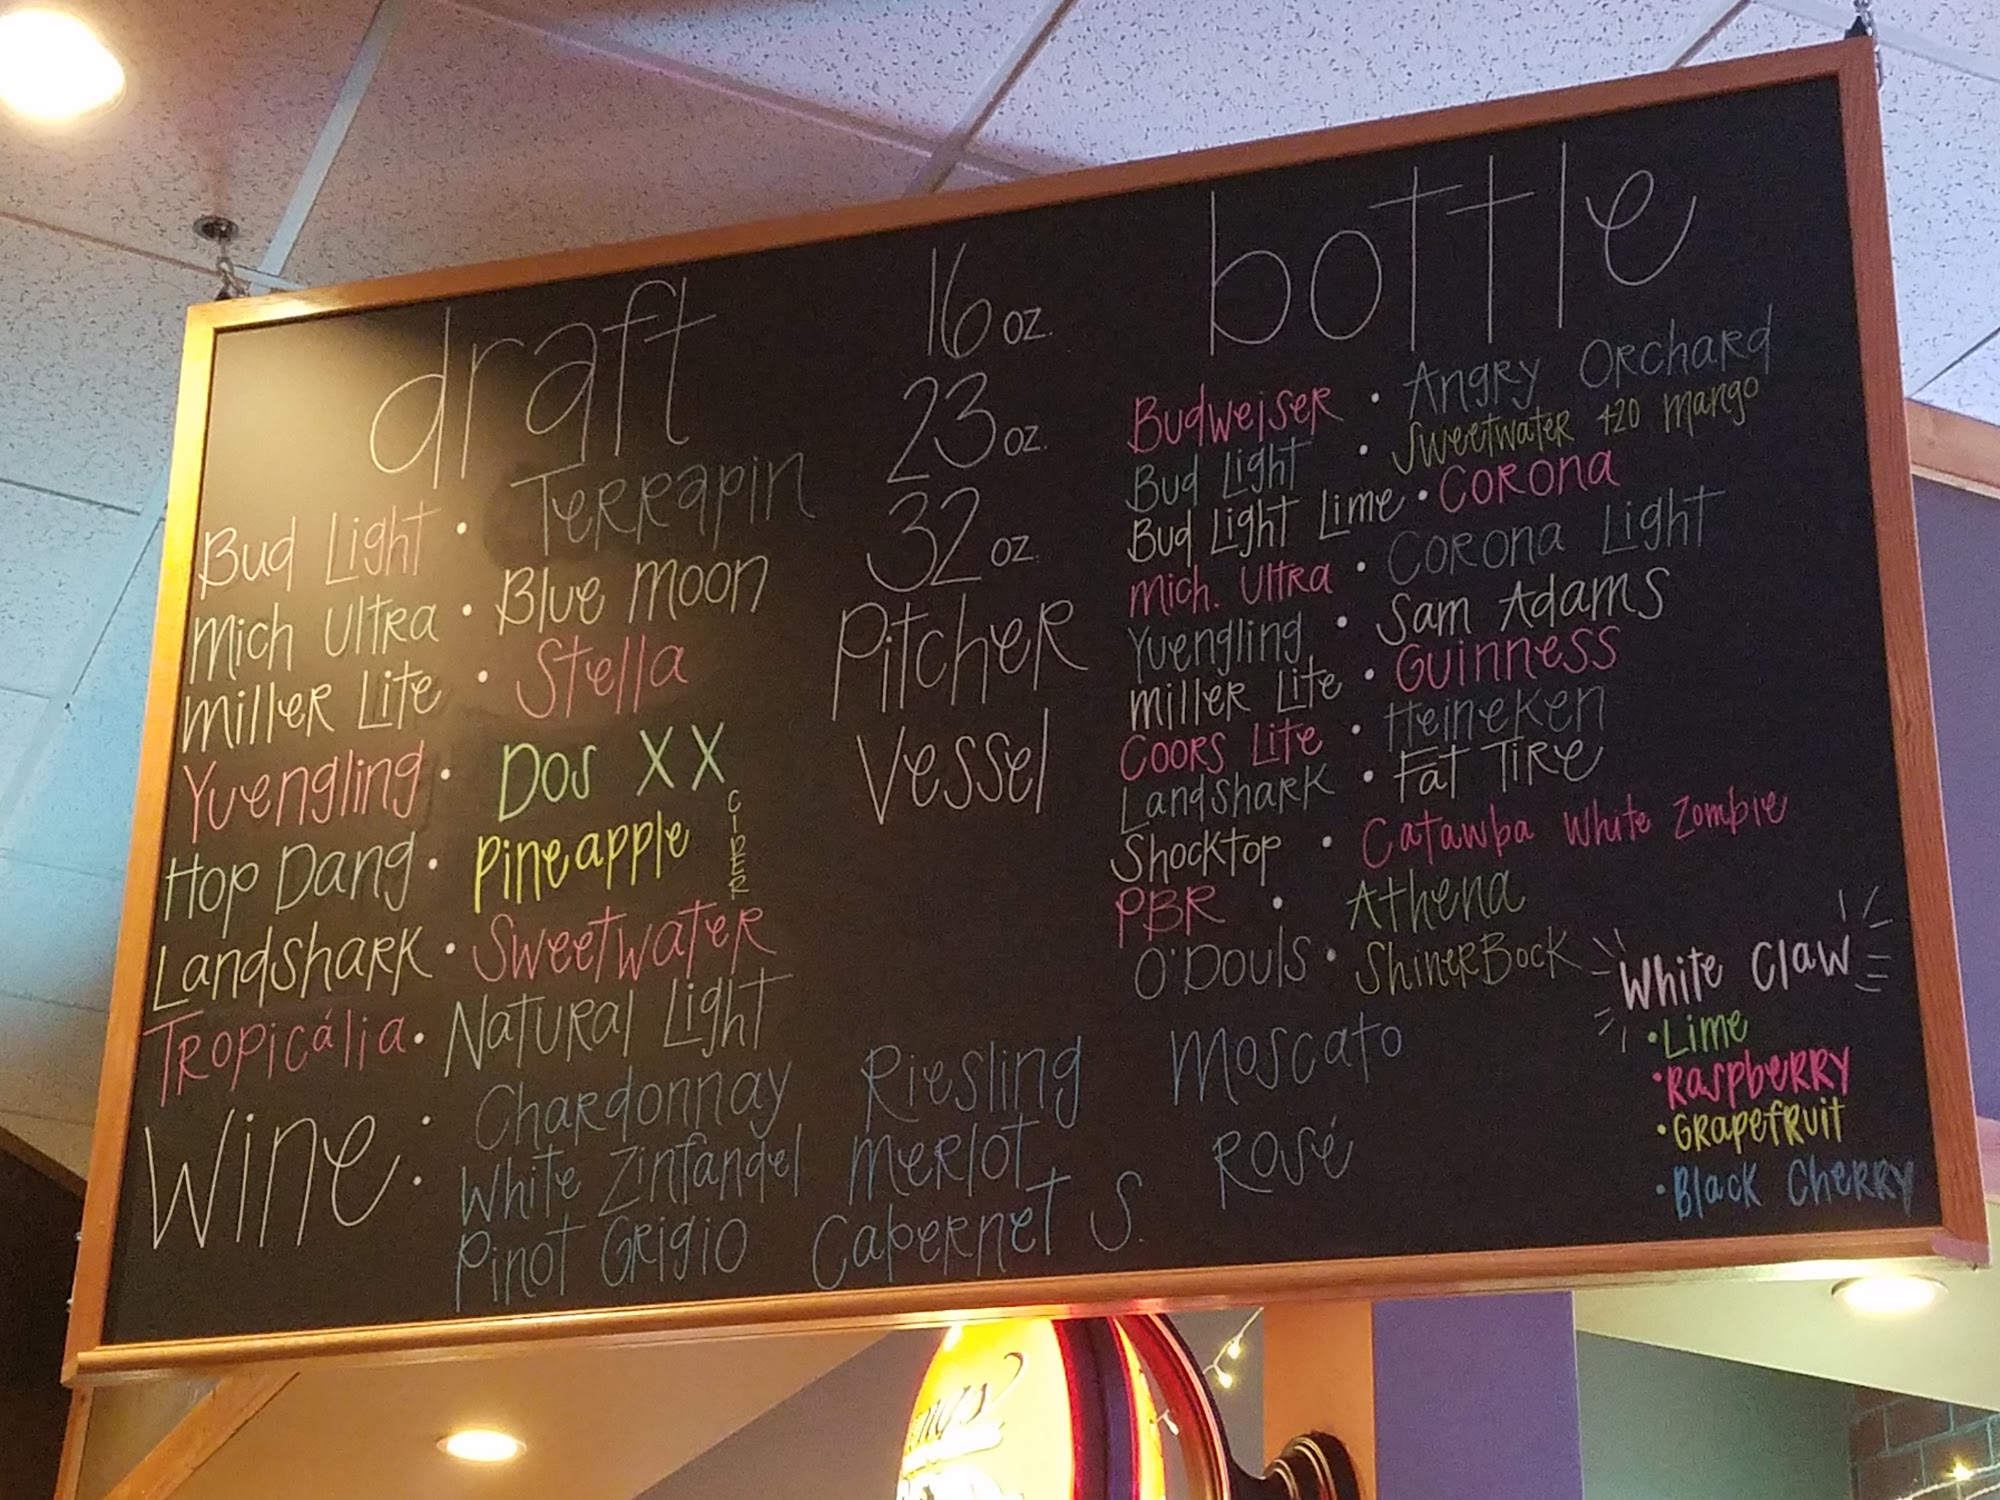 draft
Bud Light • Terrapin
Mich Ultra • Blue Moon
Miller Lite • Stella
Yuengling • Dos XX
Hop Dang • Pineapple CIDER
Landshark • Sweetwater
Tropicália • Natural Light
16 oz.
23 oz.
32 oz.
Pitcher
Vessel
bottle
Budweiser • Angry Orchard
Bud Light • Sweetwater 420 Mango
Bud Light Lime • Corona
Mich. Ultra • Corona Light
Yuengling • Sam Adams
Miller Lite • Guinness
Coors Lite • Heineken
Landshark • Fat Tire
Shocktop • Catawba White Zombie
PBR • Athena
O'Douls • ShinerBock
White Claw
• Lime
• Raspberry
• Grapefruit
• Black Cherry
Wine:
Chardonnay Riesling Moscato
White Zinfandel Merlot Rosé
Pinot Grigio Cabernet S.